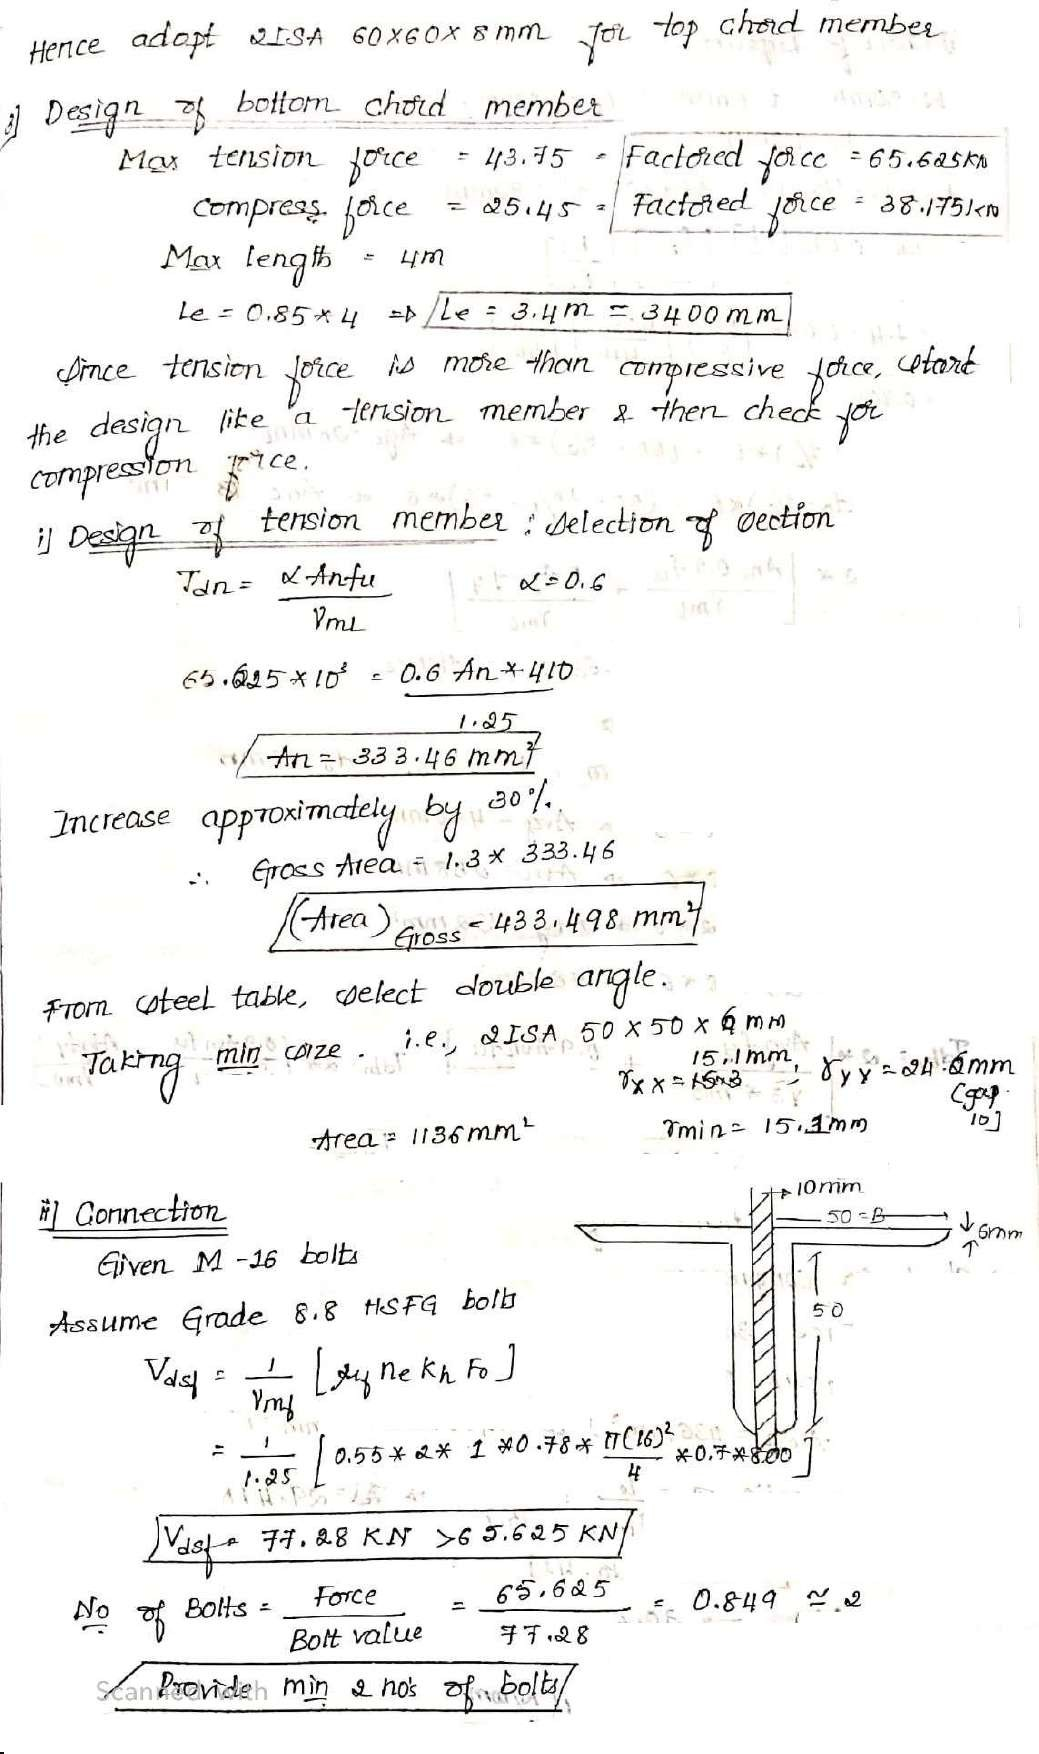 Hence adopt 2ISA 60x60x 8mm for top chord member
3] Design of bottom chord member
Max tension force = 43.75 = Factored force = 65.625KN
compress. force = 25.45 = Factored force = 38.175KN
Max length = 4m
Le = 0.85*4 => Le = 3.4m = 3400mm
Since tension force is more than compressive force, start
the design like a tension member & then check for
compression force.
i] Design of tension member : Selection of section
Tdn = α Anfu / γm1 α=0.6
65.625*10³ = 0.6 An*410 / 1.25
An = 333.46 mm²
Increase approximately by 30%.
∴ Gross Area = 1.3* 333.46
(Area) Gross = 433.498 mm²
From steel table, select double angle.
Taking min size. i.e., 2ISA 50x50x6mm
γxx = 15.1mm ; γyy = 24.6mm
[gap 10]
Area = 1136mm² γmin = 15.1mm
ii] Connection
Given M-16 bolts
Assume Grade 8.8 HSFG bolts
Vdsf = 1/γmf [μf ne Kh Fo]
= 1/1.25 [0.55*2* 1 *0.78* π(16)²/4 *0.7*800]
Vdsf = 77.28 KN >65.625 KN
No of Bolts = Force / Bolt value = 65.625 / 77.28 = 0.849 ≃ 2
Provide min 2 no's of bolts
10mm
50=B
6mm
50
Scanned with